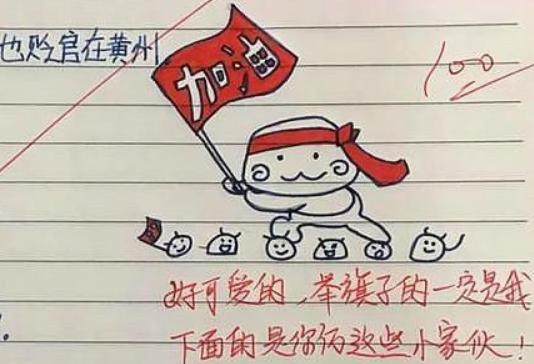 也贬官在黄州
加油
100
好可爱的，举旗子的一定是我
下面的是你们这些小家伙！